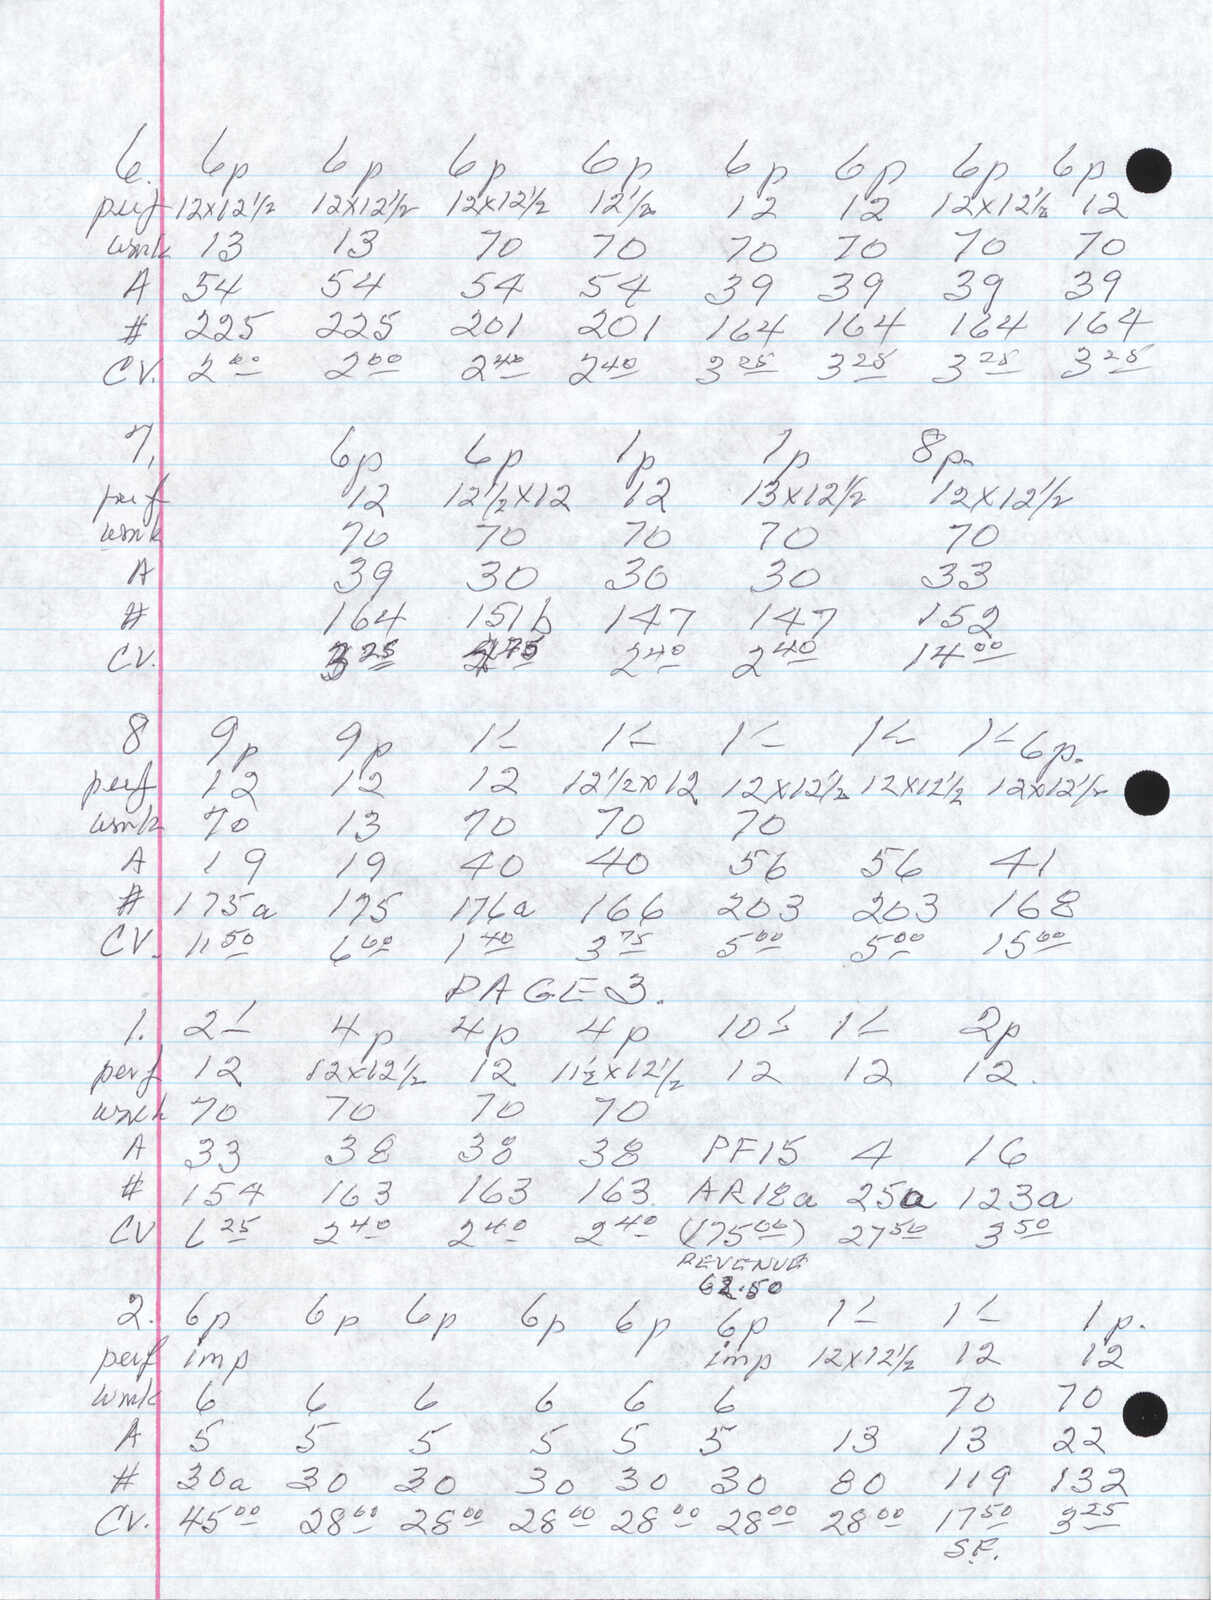 6. 6p 6p 6p 6p 6p 6p 6p 6p
perf 12x12½ 12x12½ 12x12½ 12½ 12 12 12x12½ 12
wmk 13 13 70 70 70 70 70 70
A 54 54 54 54 39 39 39 39
# 225 225 201 201 164 164 164 164
CV. 2 00 2 00 2 40 2 40 3 25 3 25 3 25 3 25
7, 6p 6p 1p 1p 8p.
perf 12 12½x12 12 13x12½ 12x12½
wmk 70 70 70 70 70
A 39 30 30 30 33
# 164 151b 147 147 152
CV. 3 25 75 2 40 2 40 14 00
8 9p 9p 1/- 1/- 1/- 1/- 1/- 6p.
perf 12 12 12 12½x12 12x12½ 12x12½ 12x12½
wmk 70 13 70 70 70
A 19 19 40 40 56 56 41
# 175a 175 176a 166 203 203 168
CV. 11 50 6 00 1 40 3 75 5 00 5 00 15 00
PAGE 3.
1. 2/- 4p 4p 4p 10/- 1/- 2p
perf 12 12x12½ 12 11½x12½ 12 12 12.
wmk 70 70 70 70
A 33 38 38 38 PF15 4 16
# 154 163 163 163 AR18a 25a 123a
CV 6 25 2 40 2 40 2 40 (175 00) 27 50 3 50
REVENUE
62.50
2. 6p 6p 6p 6p 6p 6p 1/- 1/- 1p.
perf imp imp 12x12½ 12 12
wmk 6 6 6 6 6 6 70 70
A 5 5 5 5 5 5 13 13 22
# 30a 30 30 30 30 30 80 119 132
CV. 45 00 28 00 28 00 28 00 28 00 28 00 28 00 17 50 3 25
S.F.